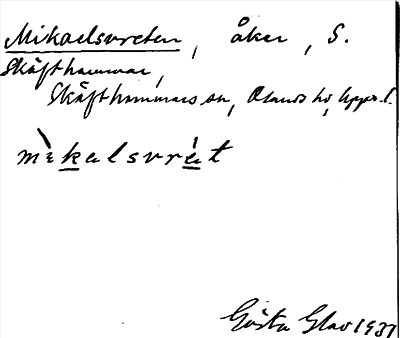 Mikaelsvreten, åker, S.
Skäfthammar,
Skäfthammars sn, Olands hd, Upps. l.
mìkalsvrét
Gösta Glav 1937